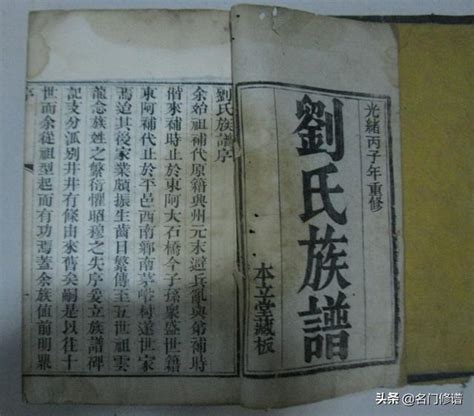 光緒丙子年重修
劉氏族譜
本立堂藏板
劉氏族譜序
余始祖補代原籍興州元末避兵亂與弟補時
偕來補時止於東阿大石橋今子孫衆盛世籍
東阿補代止於平邑西南南莘營村遂世家
焉迨其後家業頗振生齒日繁傳至五世祖雲
龍念族姓之繁衍懼昭穆之失序爰立族譜俾
記支分派別井井有條由來舊矣嗣是以往十
世而余從祖型起而有功焉蓋余族值前明鼎
序
头条 @名门修谱